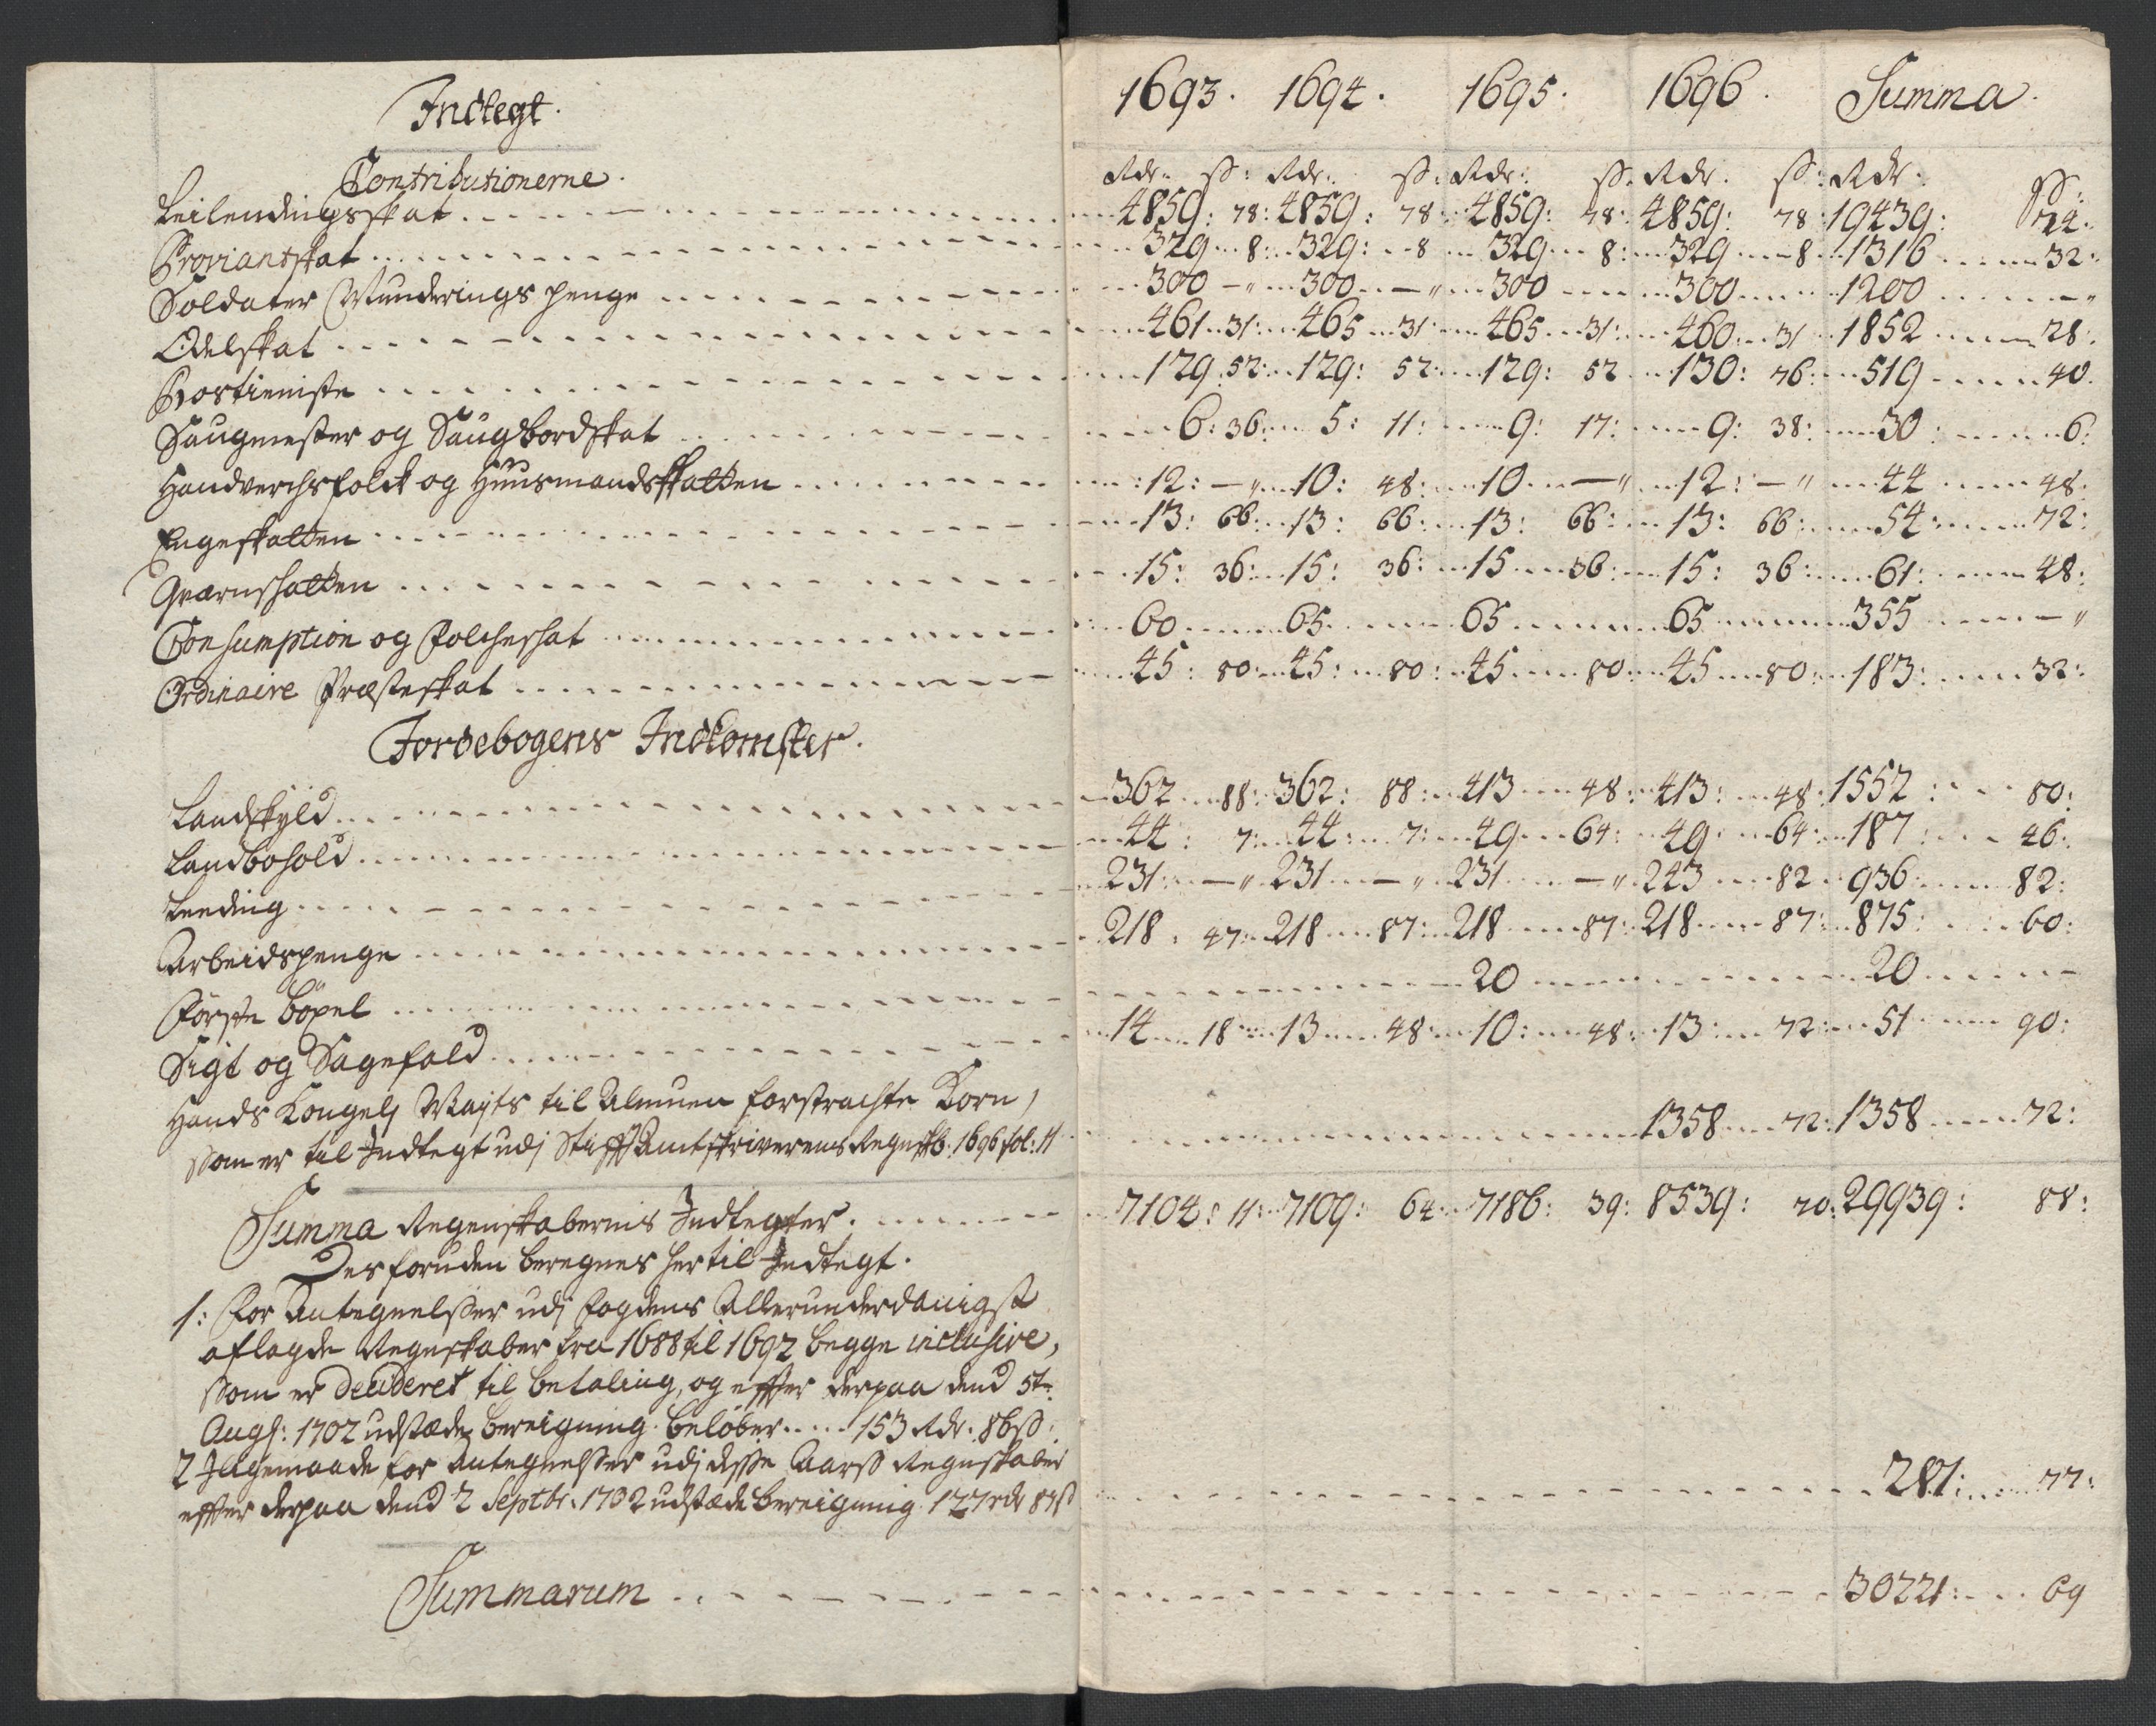 Indtegt. 1693. 1694. 1695. 1696. Summa.
Contributionerne. Rdr. ß: Rdr. ß: Rdr: ß. Rdr. ß: Rdr. ß:
Leilendingsskat 4859: 78: 4859: 78: 4859: 78: 4859: 78: 19439: 24:
Proviantskat 329 8: 329: 8 329 8: 329 8 1316 32:
Soldater Munderings penge 300 — " 300 — " 300 300 1200 — "
Odelskat 461 31: 465 31: 465 31: 460: 31 1852 28:
Rostieniste 129: 52: 129: 52: 129: 52 130: 76: 519 40.
Saugmester og Saugbordskat 6: 36: 5: 11: 9: 17: 9: 38: 30: 6:
Handverchsfolck og Huusmandsskatten 12: — " 10: 48: 10 — " 12: — " 44 48:
Engeskatten 13: 66: 13: 66: 13: 66: 13: 66: 54: 72:
Qvernskatten 15: 36: 15: 36: 15 36: 15: 36: 61: 48:
Consumption og Folcheskat 60 65 65 65 355 — "
Ordinaire Præsteskat 45: 80: 45: 80: 45 80: 45 80: 183: 32:
Jordebogens Indkomster.
Landskyld 362 88: 362: 88: 413 48: 413: 48: 1552: 80:
Landbohold 44: 7: 44: 7: 49 64: 49: 64: 187: 46:
Leeding 231: — " 231 — " 231 — " 243 82 936: 82:
Arbeidspenge 218: 47: 218 87: 218 87: 218 87: 875: 60:
Förste böxel 20 20 —
Sigt og Sagefald 14 18: 13 48: 10: 48: 13: 72: 51 90:
Hands Kongel: Mayts til Almuen forstrachte Korn,
som er til Indtegt udj Stifft Amtskriverens Regnskb: 1696 fol: 11 1358 72: 1358 72:
Summa Regenskabernis Indtegter. 7104: 11: 7109: 64: 7186: 39: 8539: 70: 29939: 88:
Desforuden beregnes her til Indtegt.
1: For Antegnelsser udj fogdens Allerunderdanigst
aflagde Regnskaber fra 1688 til 1692 begge inclusive,
som er decideret til betaling, og effter derpaa dend 5te
Aug: 1702 udstæde bereigning. belöber 153 Rdr. 86 ß:
2 Jligemaade for Antegnelsser udj disse Aars Regnskaber
effter derpaa dend 2 Septbr: 1702 udstæde bereigning 127 rdr 87 ß 281: 77:
Summarum 30221: 69